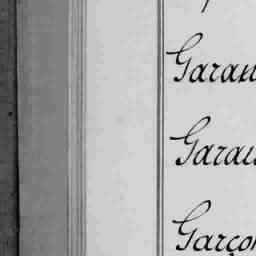 Garan
Garau
Garço